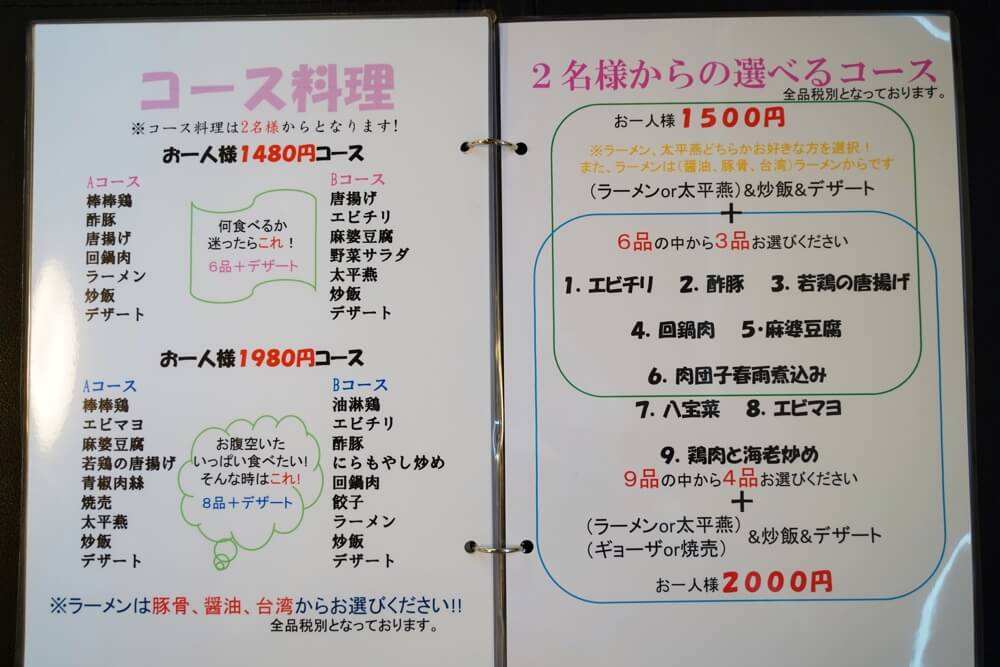 コース料理
※コース料理は2名様からとなります!
お一人様1480円コース
Aコース
棒棒鶏
酢豚
唐揚げ
回鍋肉
ラーメン
炒飯
デザート
何食べるか
迷ったらこれ！
6品＋デザート
Bコース
唐揚げ
エビチリ
麻婆豆腐
野菜サラダ
太平燕
炒飯
デザート
お一人様1980円コース
Aコース
棒棒鶏
エビマヨ
麻婆豆腐
若鶏の唐揚げ
青椒肉絲
焼売
太平燕
炒飯
デザート
お腹空いた
いっぱい食べたい!
そんな時はこれ!
8品＋デザート
Bコース
油淋鶏
エビチリ
酢豚
にらもやし炒め
回鍋肉
餃子
ラーメン
炒飯
デザート
※ラーメンは豚骨、醤油、台湾からお選びください!!
全品税別となっております。
2名様からの選べるコース
全品税別となっております。
お一人様1500円
※ラーメン、太平燕どちらかお好きな方を選択！
また、ラーメンは(醤油、豚骨、台湾)ラーメンからです
(ラーメンor太平燕)&炒飯&デザート
＋
6品の中から3品お選びください
1. エビチリ 2. 酢豚 3. 若鶏の唐揚げ
4. 回鍋肉 5・麻婆豆腐
6. 肉団子春雨煮込み
7. 八宝菜 8. エビマヨ
9. 鶏肉と海老炒め
9品の中から4品お選びください
＋
(ラーメンor太平燕)
(ギョーザor焼売)
&炒飯&デザート
お一人様2000円